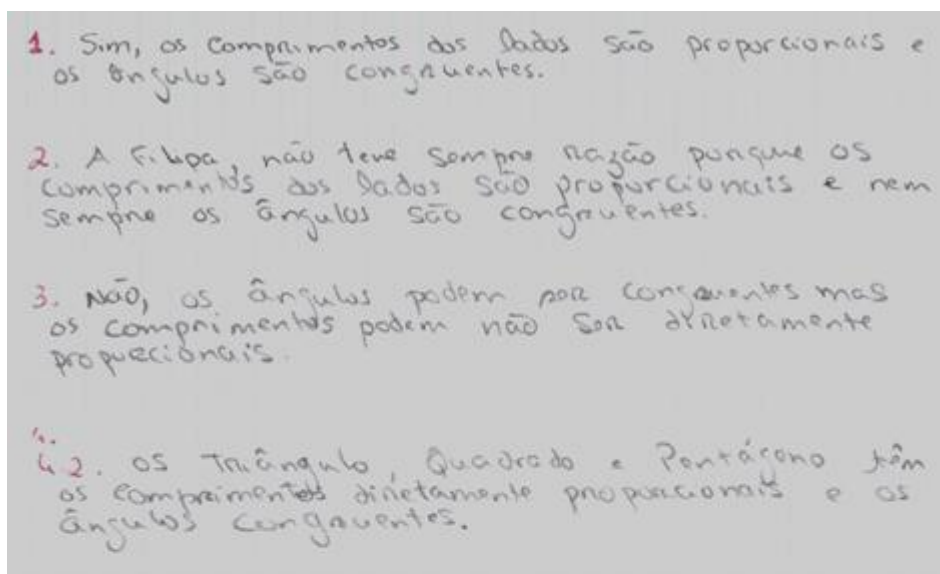 1. Sim, os comprimentos dos lados são proporcionais e
os ângulos são congruentes.
2. A Filipa, não teve sempre razão porque os
comprimentos dos lados são proporcionais e nem
sempre os ângulos são congruentes.
3. Não, os ângulos podem ser congruentes mas
os comprimentos podem não ser diretamente
proporcionais.
4.
4.2. os Triângulo, Quadrado e Pentágono têm
os comprimentos diretamente proporcionais e os
ângulos congruentes.